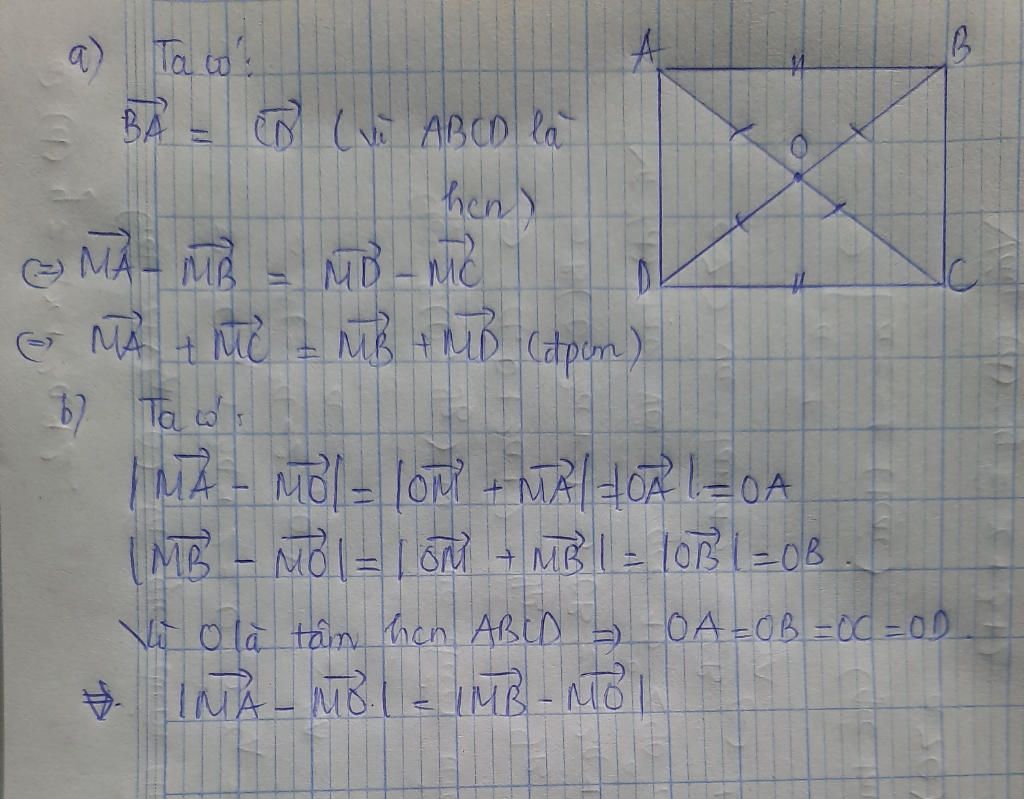 a) Ta có:
A B
$\overrightarrow{BA} = \overrightarrow{CD}$ (vì ABCD là
O
hcn)
⇔ $\overrightarrow{MA} - \overrightarrow{MB} = \overrightarrow{MD} - \overrightarrow{MC}$
D C
⇔ $\overrightarrow{MA} + \overrightarrow{MC} = \overrightarrow{MB} + \overrightarrow{MD}$ (đpcm)
b) Ta có:
$|\overrightarrow{MA} - \overrightarrow{MO}| = |\overrightarrow{OM} + \overrightarrow{MA}| = |\overrightarrow{OA}| = OA$
$|\overrightarrow{MB} - \overrightarrow{MO}| = |\overrightarrow{OM} + \overrightarrow{MB}| = |\overrightarrow{OB}| = OB$.
Vì O là tâm hcn ABCD ⇒ OA = OB = OC = OD.
⇒ $|\overrightarrow{MA} - \overrightarrow{MO}| = |\overrightarrow{MB} - \overrightarrow{MO}|$